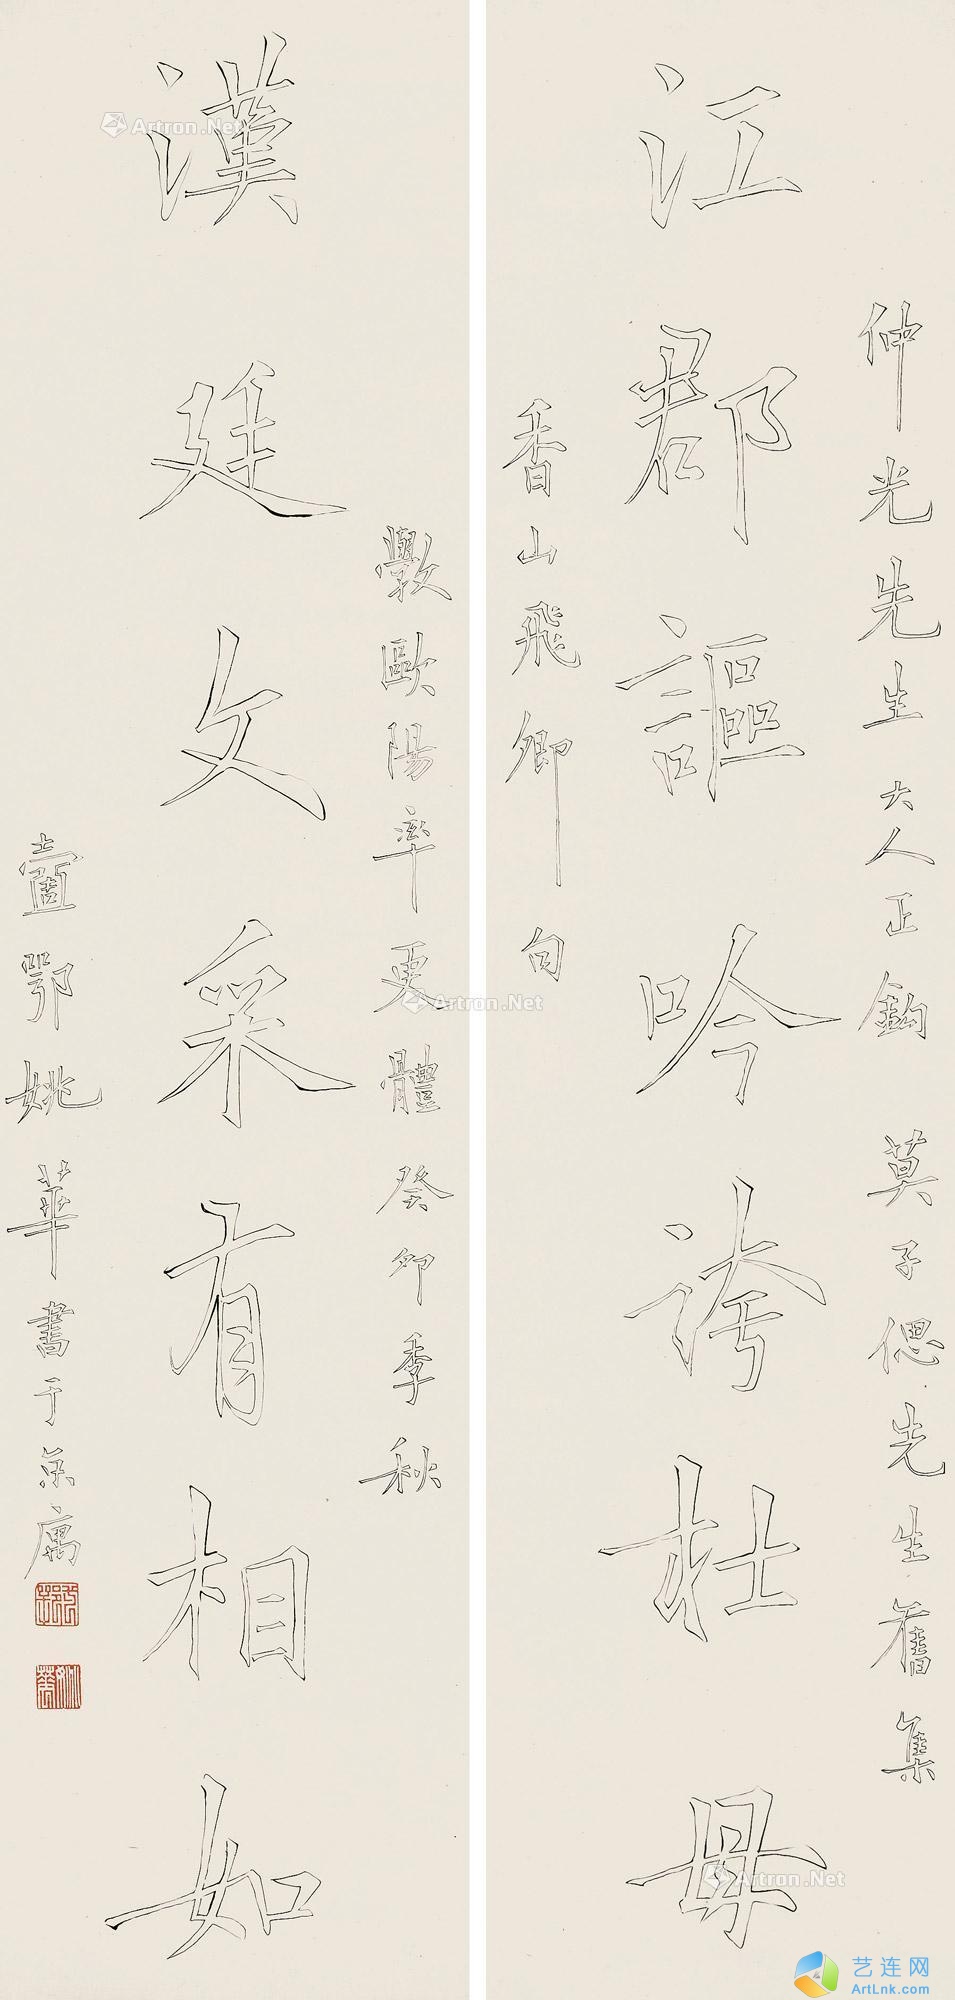 仲光先生大人正鈎 莫子偲先生舊集
江郡謳吟誇杜母
香山飛卿句
斆歐陽率更體癸卯季秋
漢廷文采有相如
壼鄂姚華書于京庽
Artron.Net
Artron.Net
Artron.Net
艺连网
ArtLnk.com